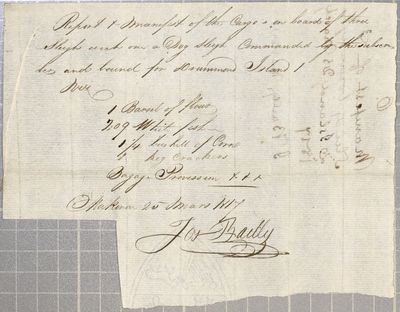 Report & Manifest of the Cargo on board of three
Sleighs and one Dog Sleigh Commanded by the subscri
ber and bound for Drummond Island
1 Barrel of flour
209 White fish
1½ bushell of Corn
keg Crackers
Bagage Provission + + +
Makinac 25 Mars 1817
Jos Bailly
Manifest of